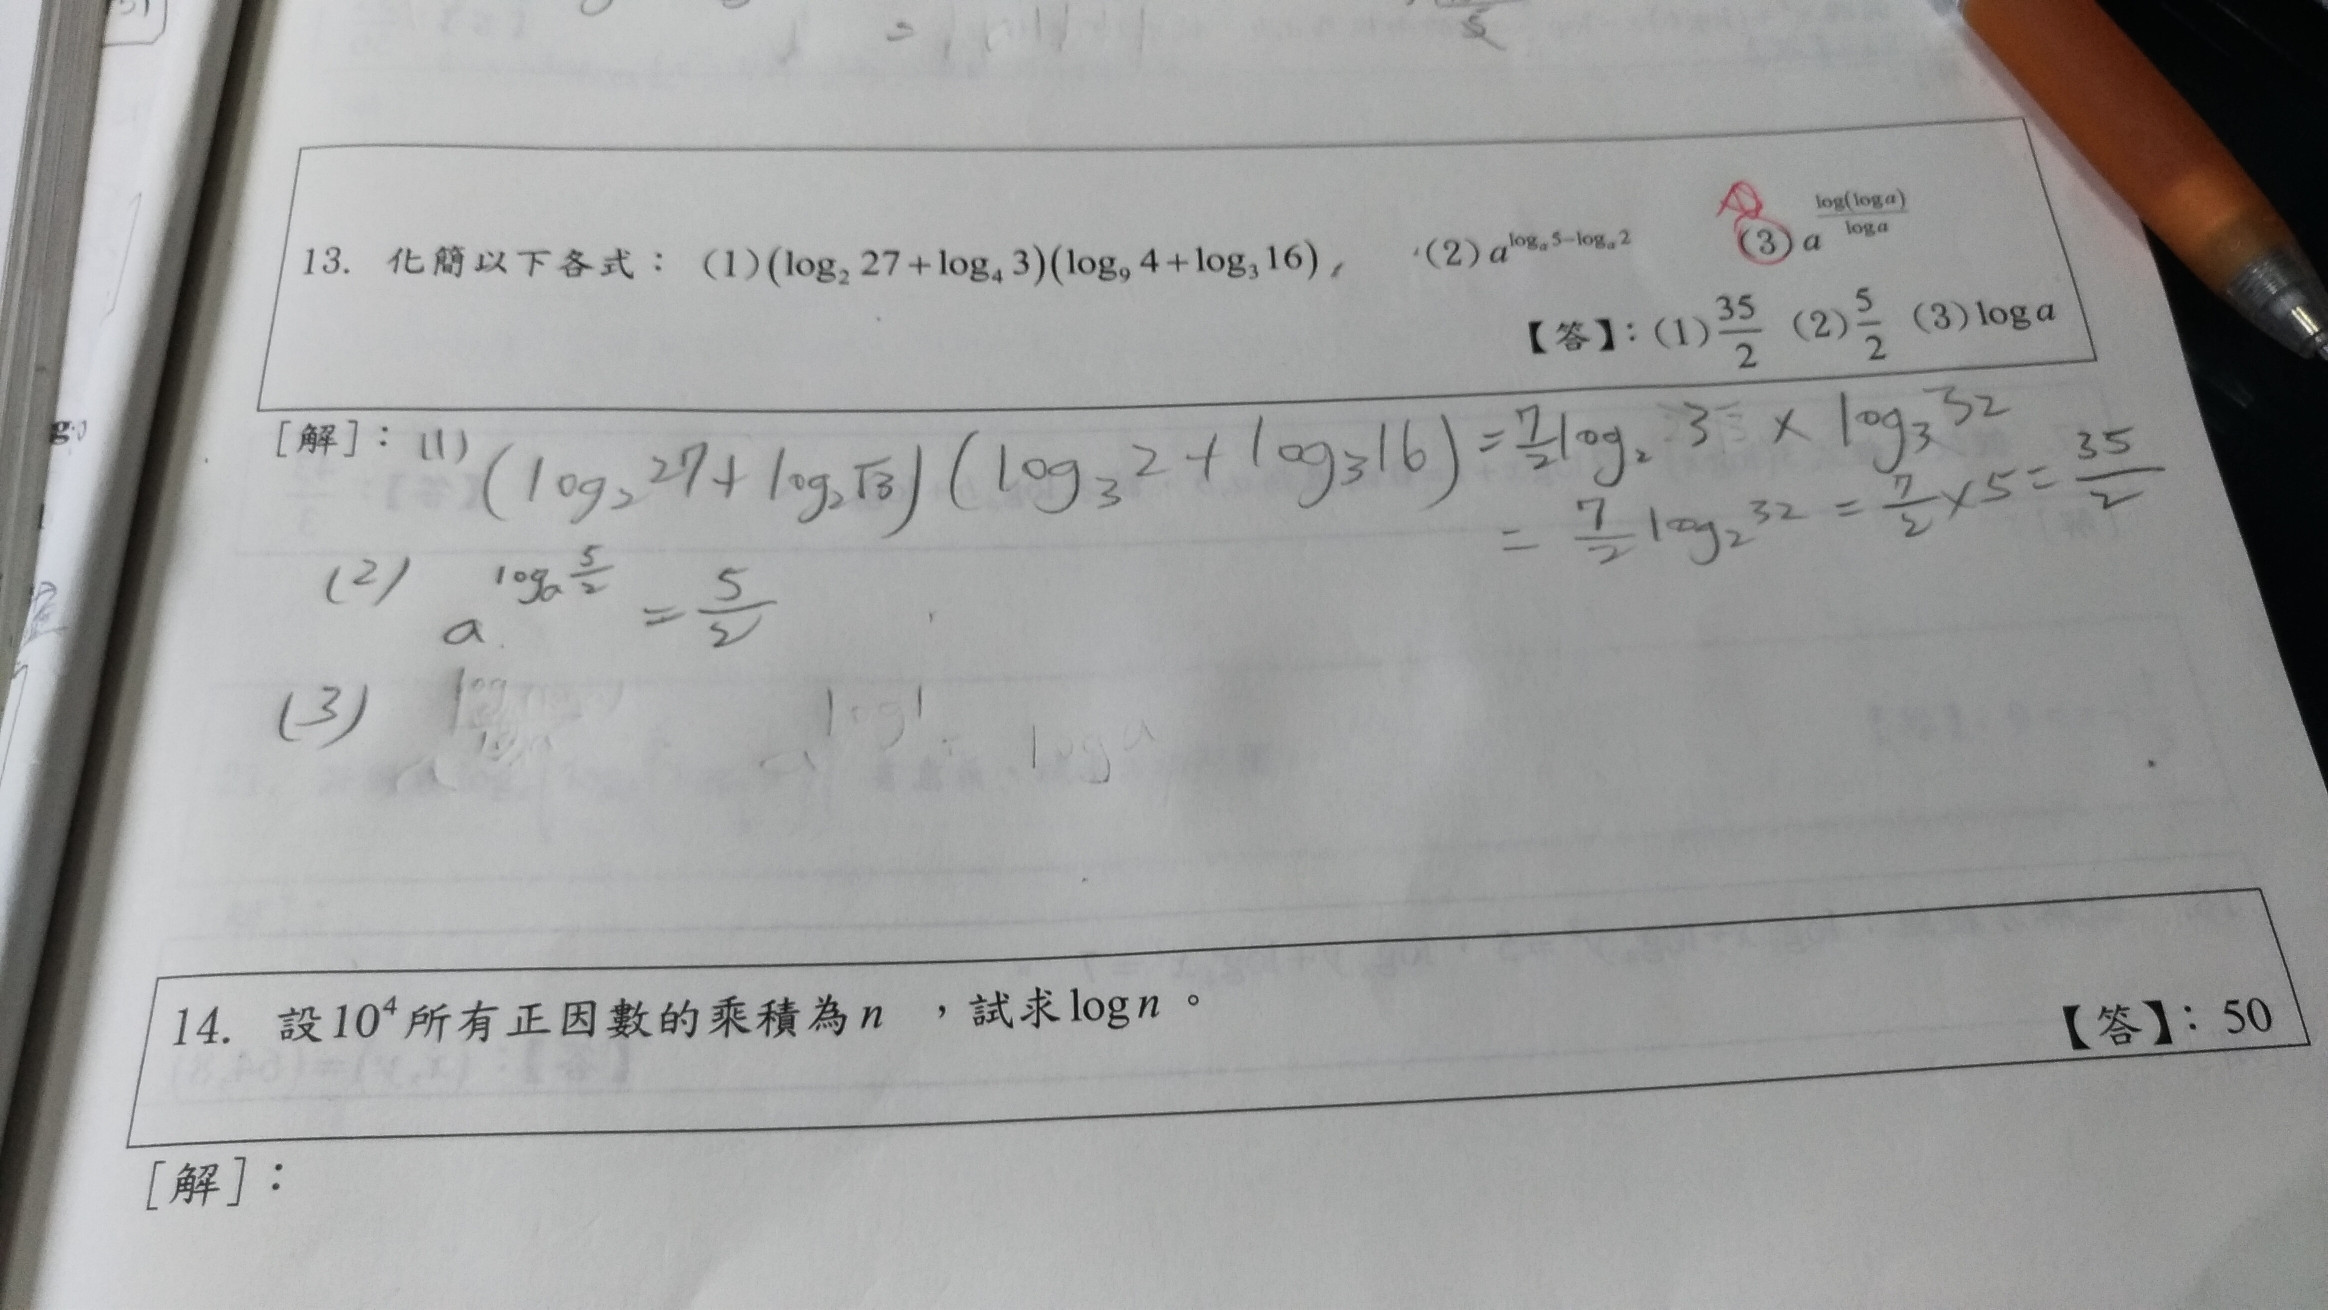 13. 化簡以下各式：(1)(log₂ 27+log₄ 3)(log₉ 4+log₃ 16)， (2) a^(logₐ 5−logₐ 2) (3) a^(log(log a)/log a)
【答】：(1) 35/2 (2) 5/2 (3) log a
[解]：(1) (log₂ 27 + log₂ √3) (log₃ 2 + log₃ 16) = 7/2 log₂ 3 × log₃ 32
= 7/2 log₂ 32 = 7/2 × 5 = 35/2
(2) a^(logₐ 5/2) = 5/2
(3)
14. 設10⁴所有正因數的乘積為n ，試求log n。
【答】：50
[解]：